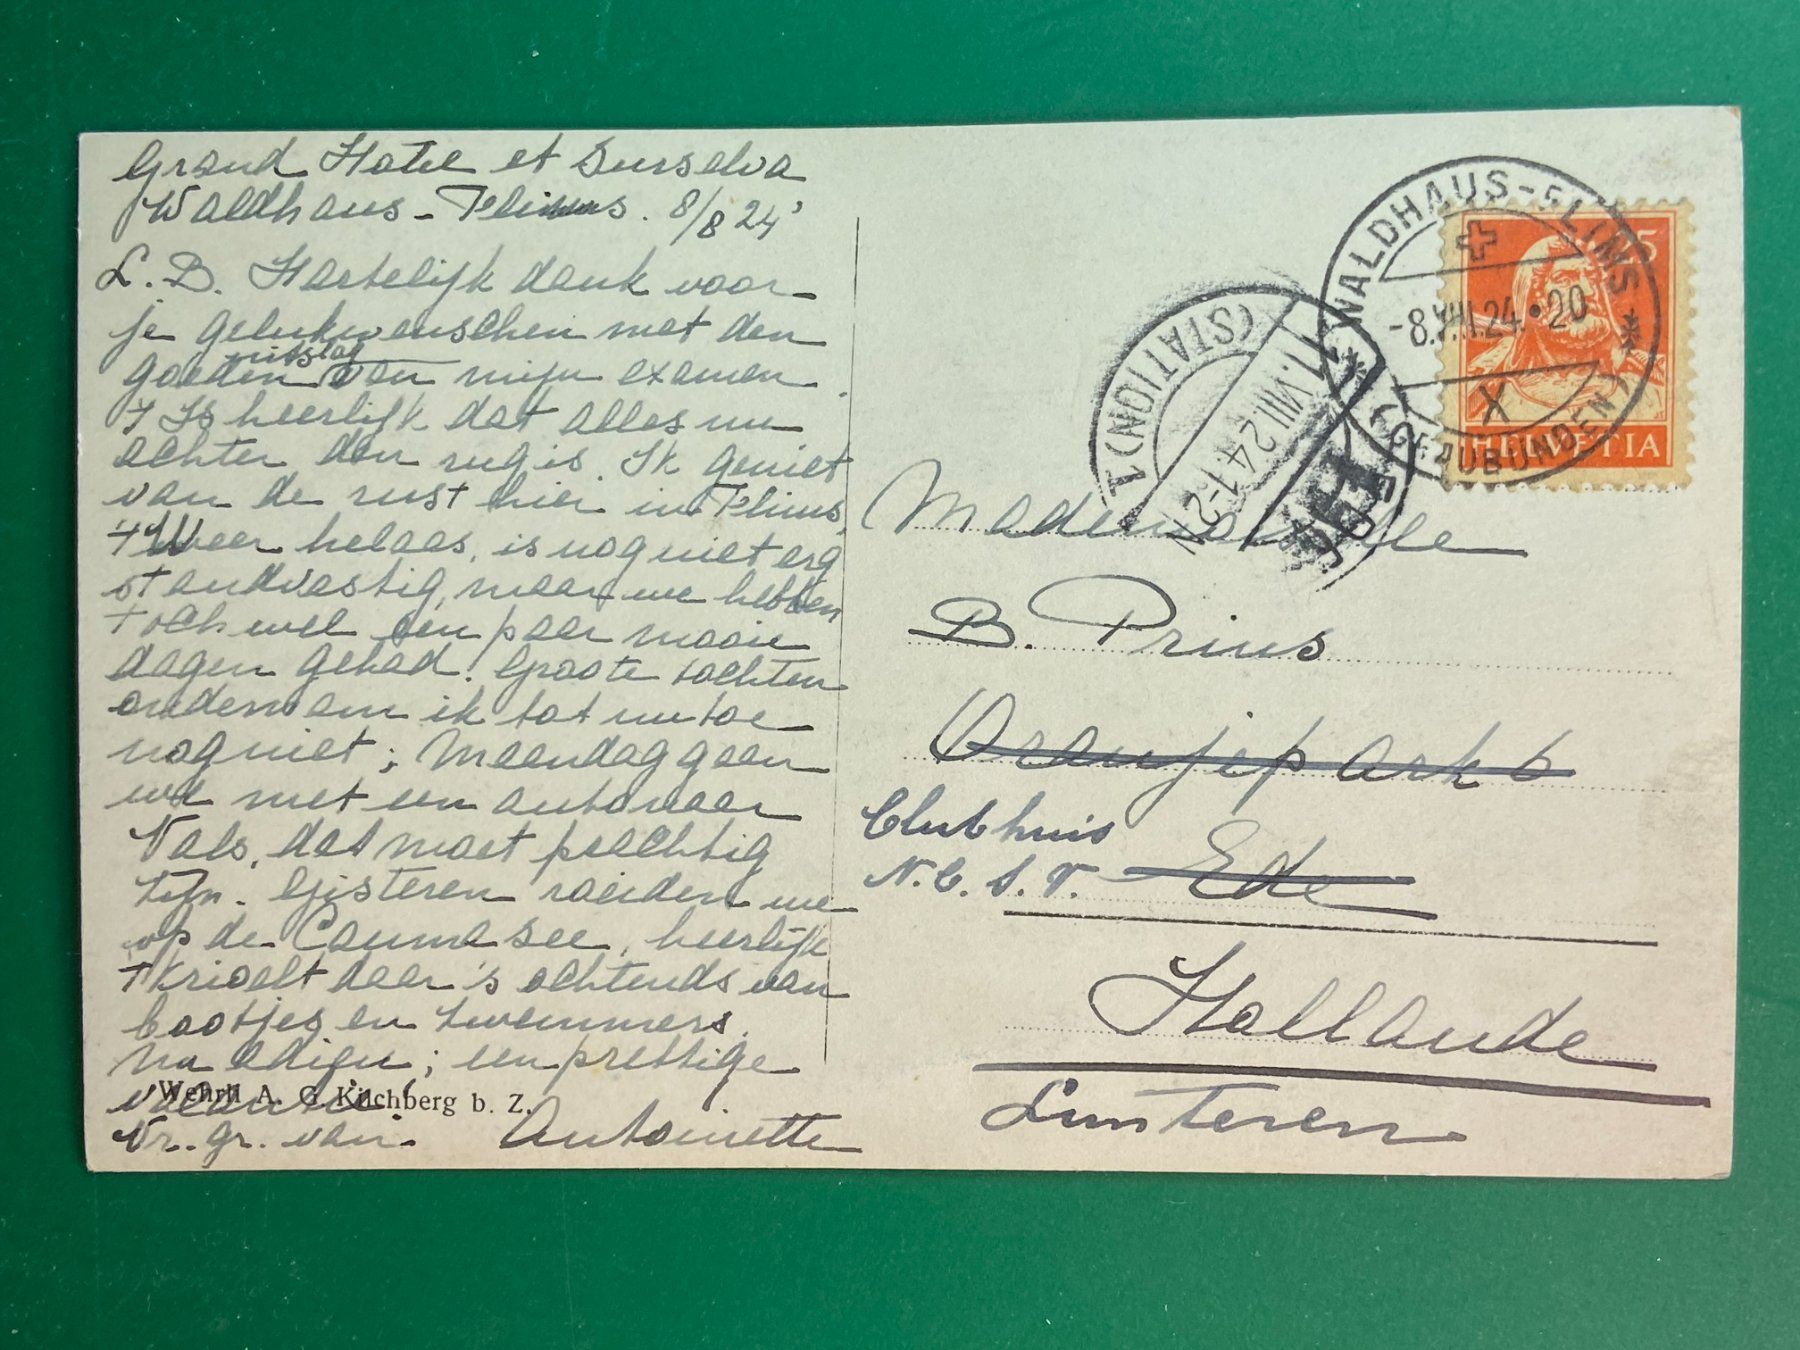 Grand Hotel et Surselva
Waldhaus - Flims. 8/8 24'
L. B. Hartelijk dank voor
je gelukwenschen met den
goeden uitslag van mijn examen.
't Is heerlijk dat alles nu
achter den rug is. Ik geniet
van de rust hier in Flims,
't Weer helaas, is nog niet erg
standvastig, maar we hebben
toch wel een paar mooie
dagen gehad. Groote tochten
ondernam ik tot nu toe
nog niet; Maandag gaan
we met een auto naar
Vals, dat moet prachtig
zijn. Gisteren roeiden we
op de Caumasee, heerlijk
't krioelt daar 's ochtends van
bootjes en zwemmers.
Nu adieu; een prettige
vacantie
Wehrli A. G. Kilchberg b. Z.
Vr. gr. van Antoinette
WALDHAUS-FLIMS
-8.VIII.24.•20
X
(GRAUBÜNDEN)
HELVETIA
(STATION) 1
11.VIII.24 1-2N
Mademoiselle
B. Prins
Oranjepark 6
Clubhuis
N.C.S.V. Ede
Hollande
Lunteren